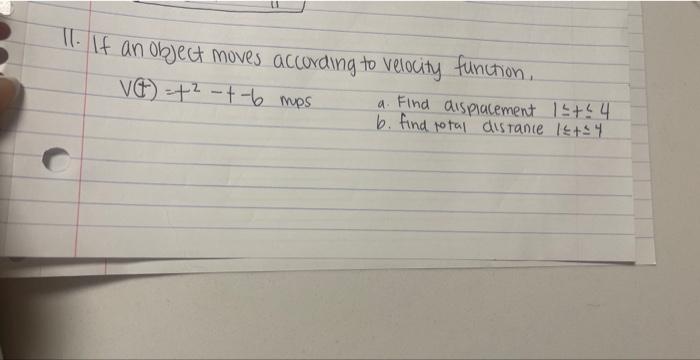 11. If an object moves according to velocity function,
V(t) = t² - t - 6 mps
a. Find displacement 1 ≤ t ≤ 4
b. find total distance 1 ≤ t ≤ 4